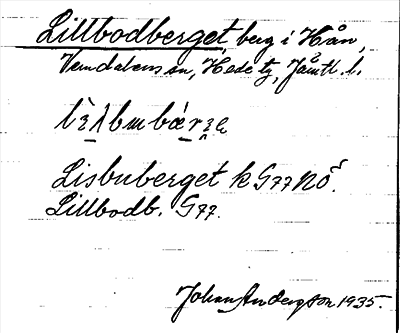 Lillbodberget, berg i Hån,
Vemdalens sn, Hede tg, Jämtl. l.
Lisbuberget k G77 NÖ.
Lillbodb. G77.
Johan Anderson 1935.